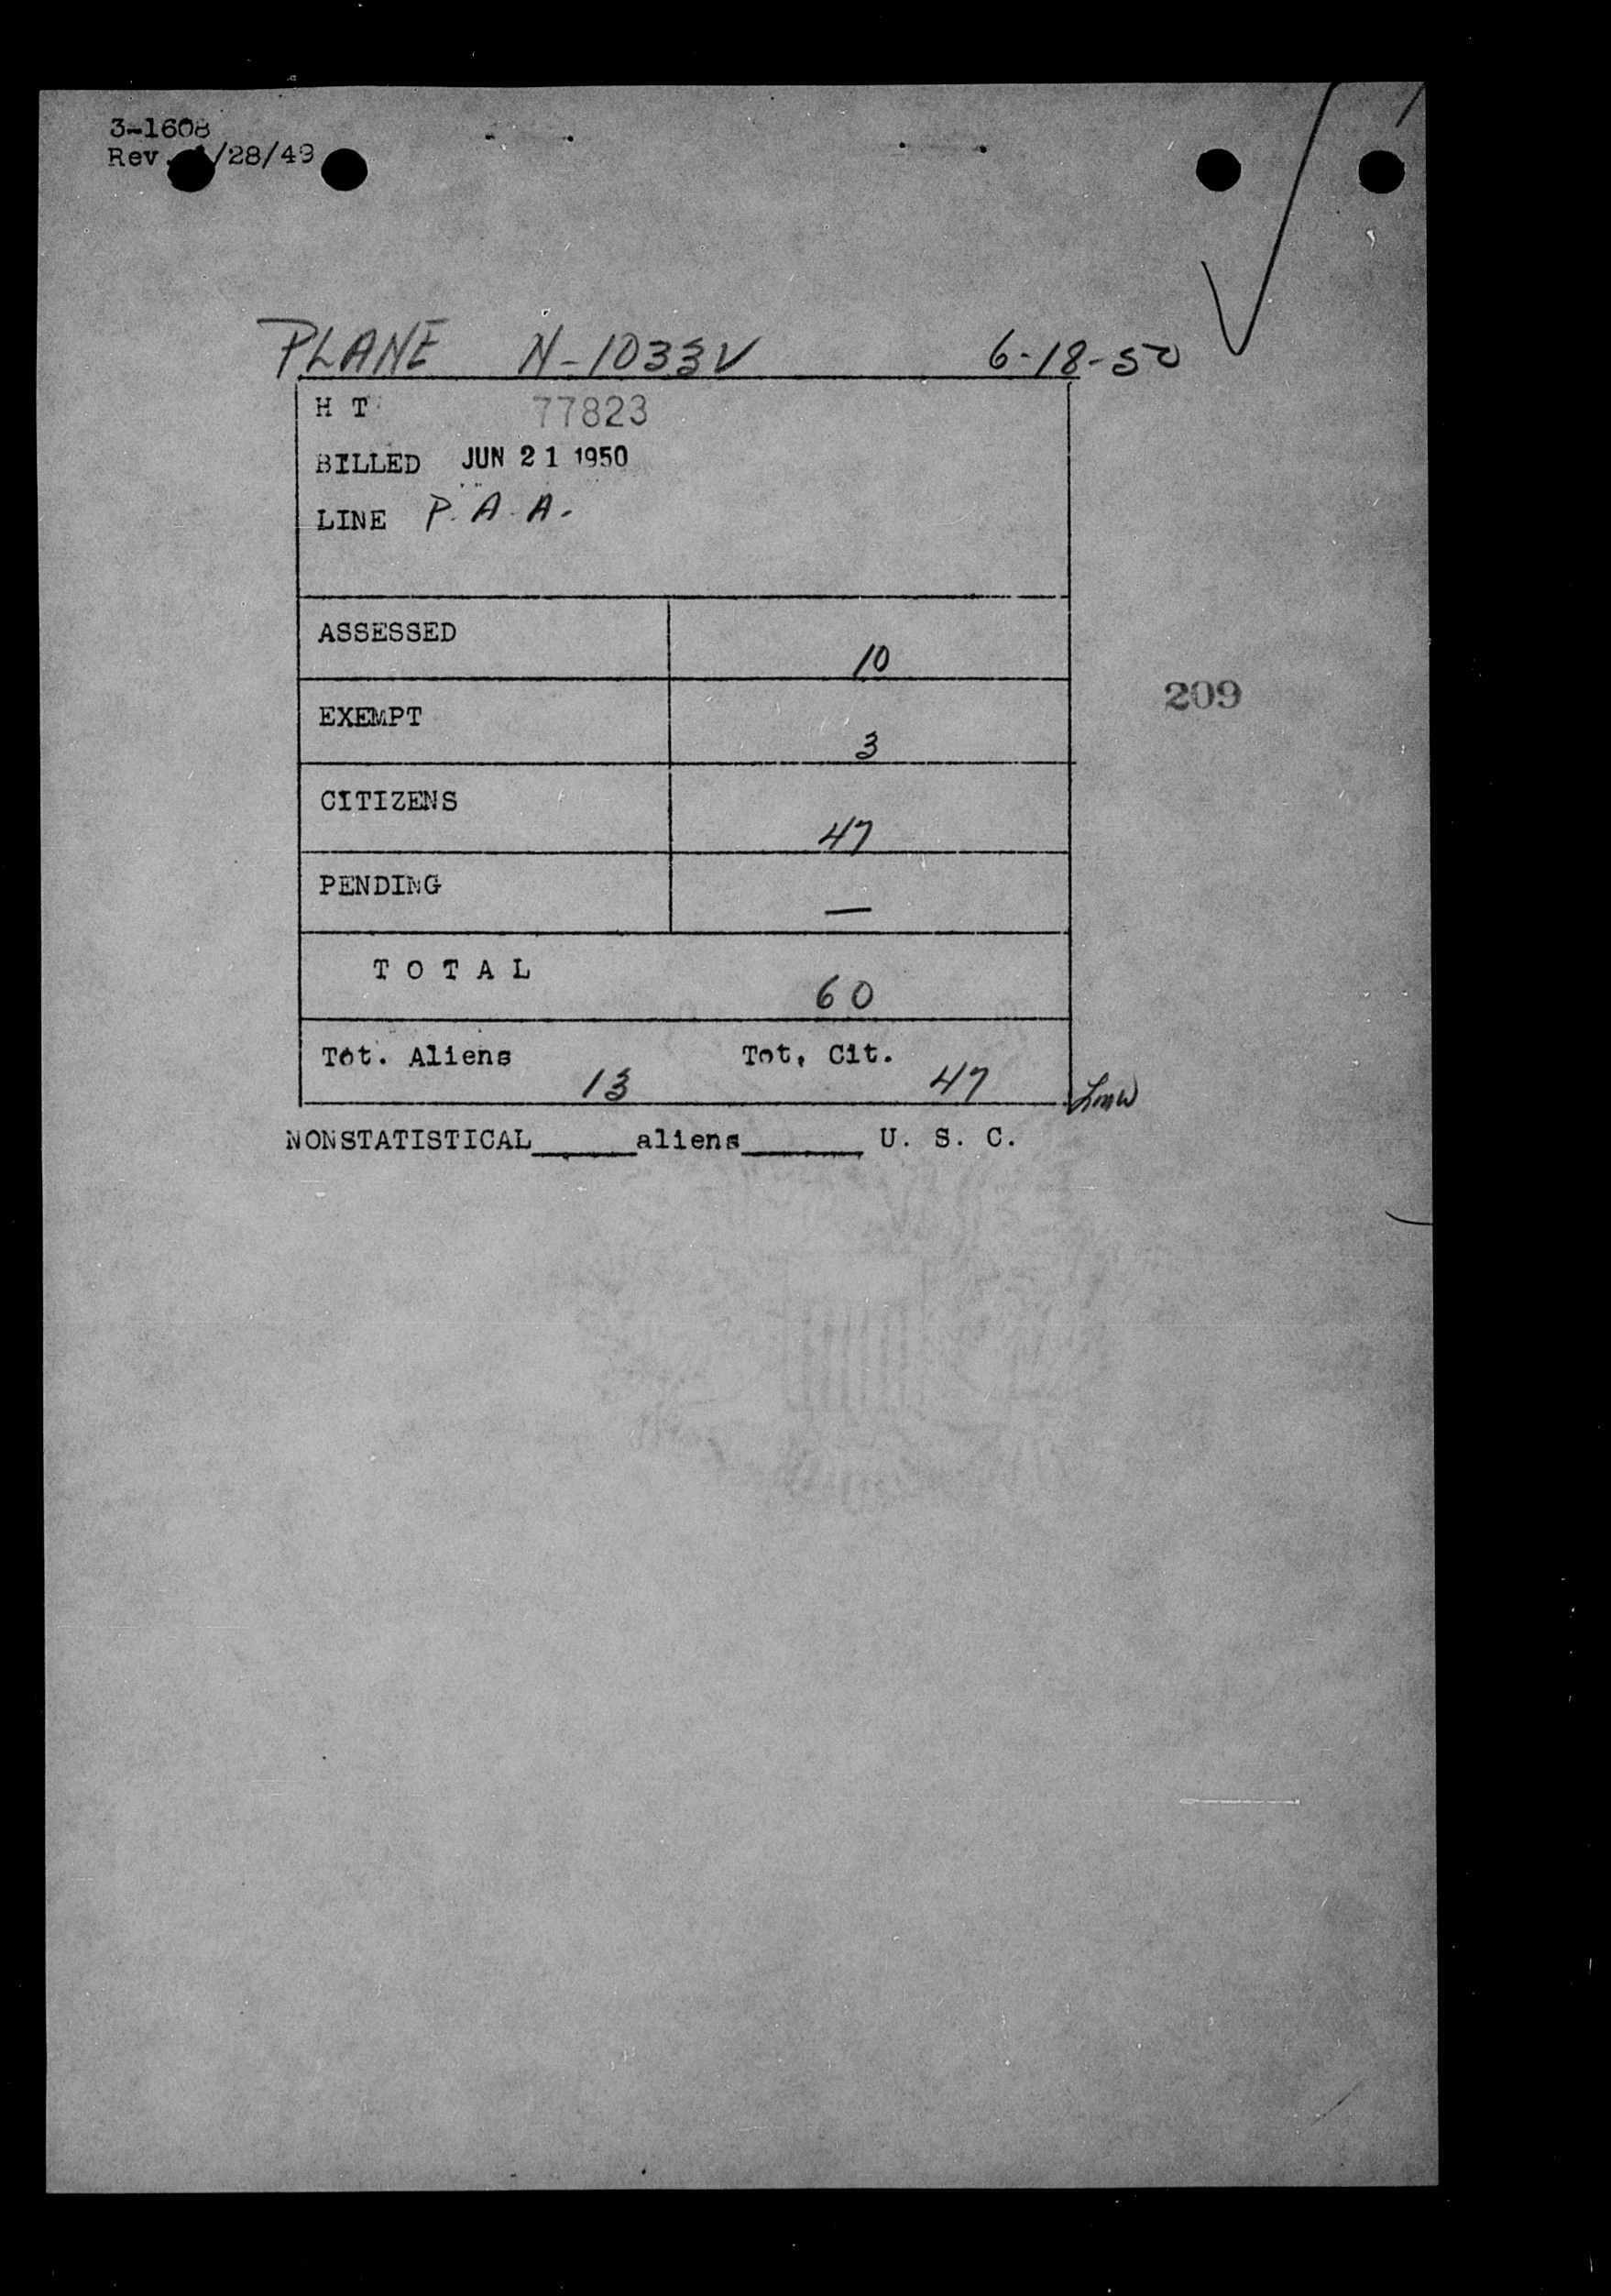 3-1608
Rev. /28/49
PLANE N-1033V 6-18-50
H T 77823
BILLED JUN 21 1950
LINE P. A. A.
ASSESSED 10
EXEMPT 3
209
CITIZENS 47
PENDING —
T O T A L 60
Tot. Aliens 13 Tot. Cit. 47
NONSTATISTICAL______aliens_______ U. S. C.